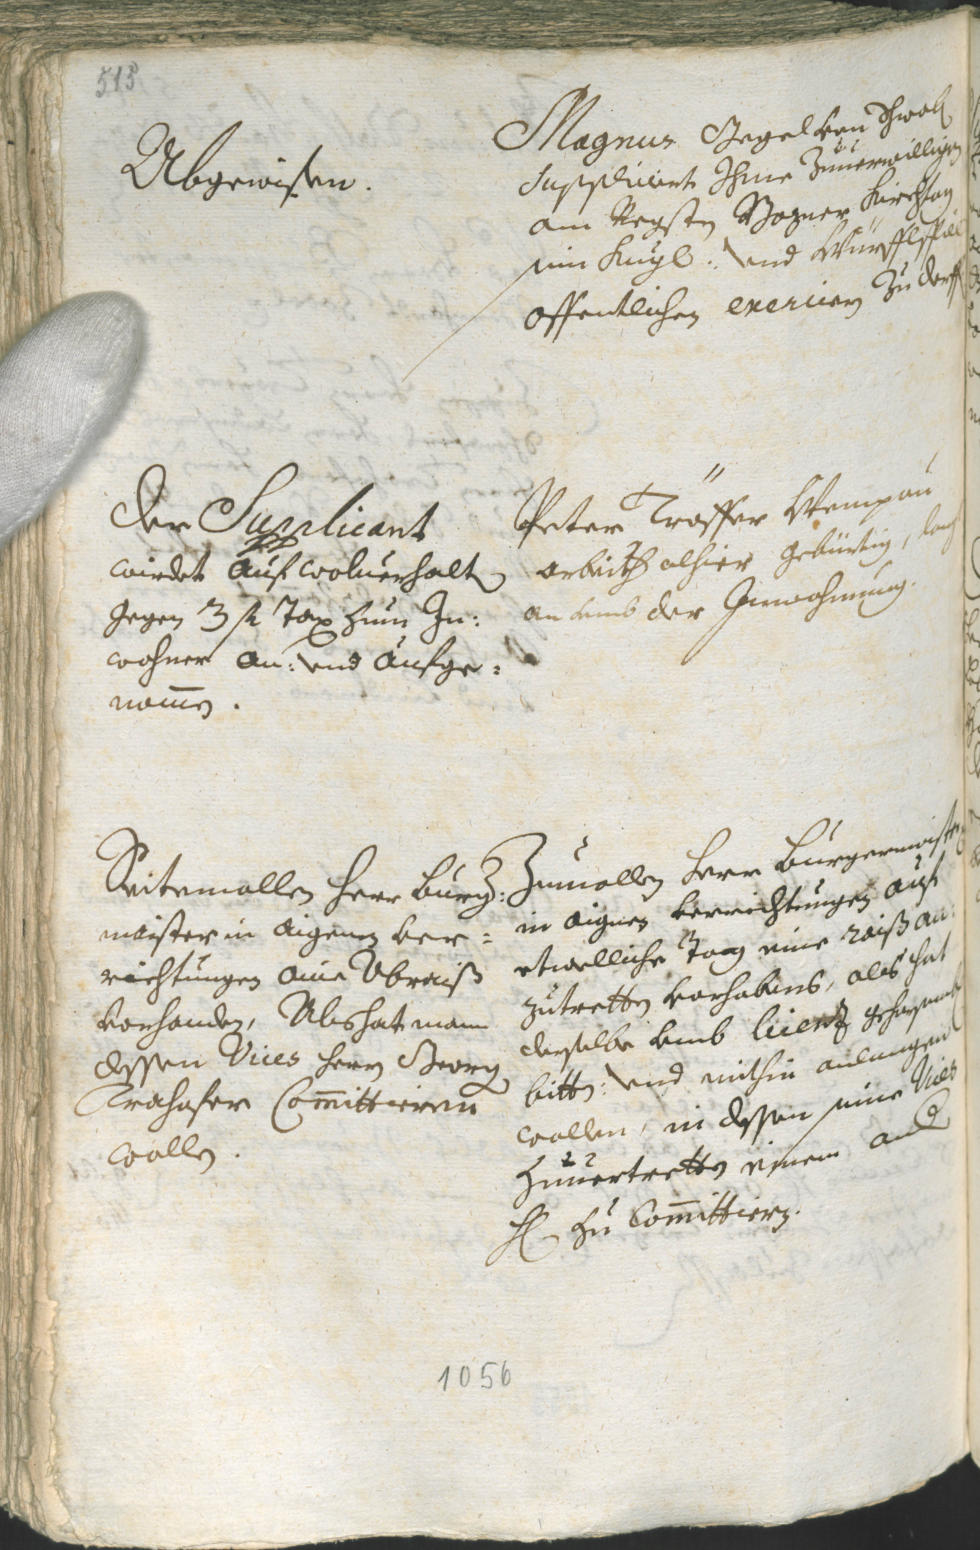 515
Abgewisen.
Magnus Segel von Schwaz
Supplicirt Ihme zuuerwilligen
am Negsten Bozner Kirchtag
ein Kugl: vnd Würfflspill
offentlichen exerciern zu derff
Der Supplicant
wirdet auf wolverhalt
gegen 3 fl Tax zum In:
wohner an: vnd aufge=
nomen.
Peter Tröffer
arbeith alhier gebürtig, langt
an vmb der Inwohnung.
Seitemallen Herr Burg:
maister in aignen ver=
richtungen aine Abreiß
vorhanden, Als hat man
dessen Vices Herrn Georg
Committieren
wollen.
Zumallen Herr Burgermaister
in aignen verrichtungen auf
etwelliche Tag eine raiß an:
zutretten vorhabens, als hat
derselbe vmb licenz gehorsamb
bitten: vnd mithin anlangen
wollen, in dessen seine Vices
zuuertretten einem and
zu Committiern.
1056